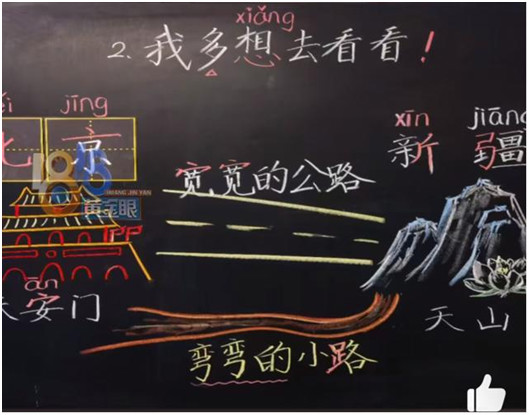 xiǎng
2. 我多想去看看!
jīng
京
xīn jiāng
新疆
宽宽的公路
ān
安门
天山
弯弯的小路
1818
HUANG JIN YAN
黄金眼